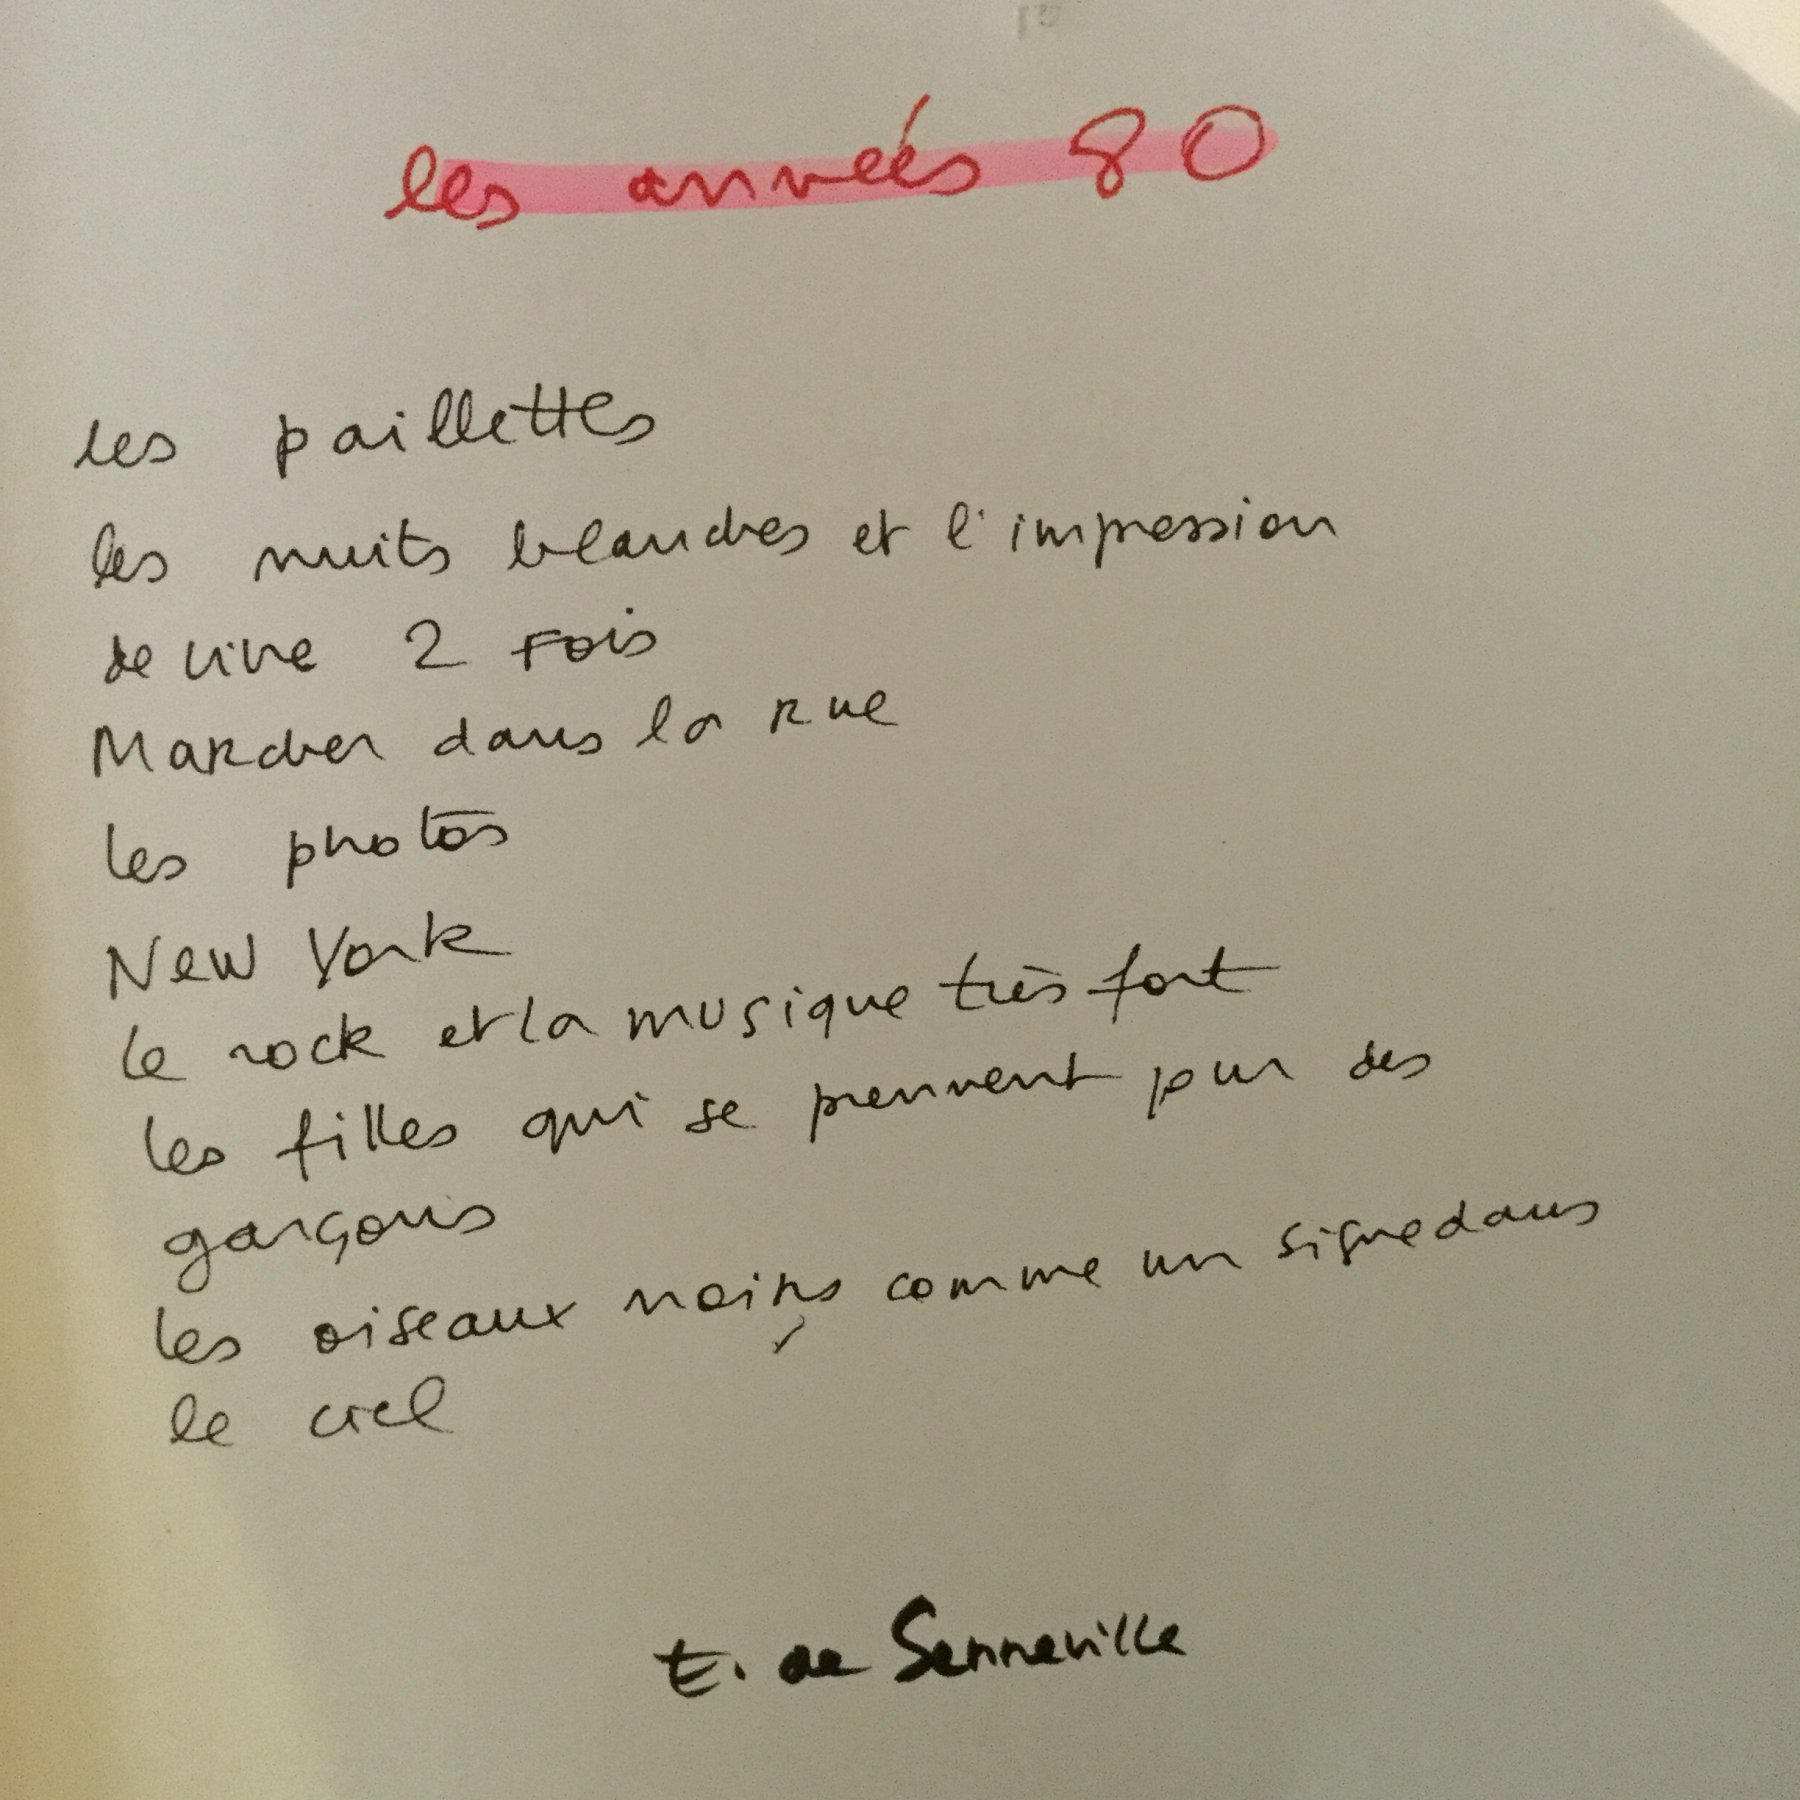 les années 80
les paillettes
les nuits blanches et l'impression
de vivre 2 fois
Marcher dans la rue
les photos
New York
le rock et la musique très fort
les filles qui se prennent pour des
garçons
les oiseaux noirs comme un signe dans
le ciel
E. de Senneville